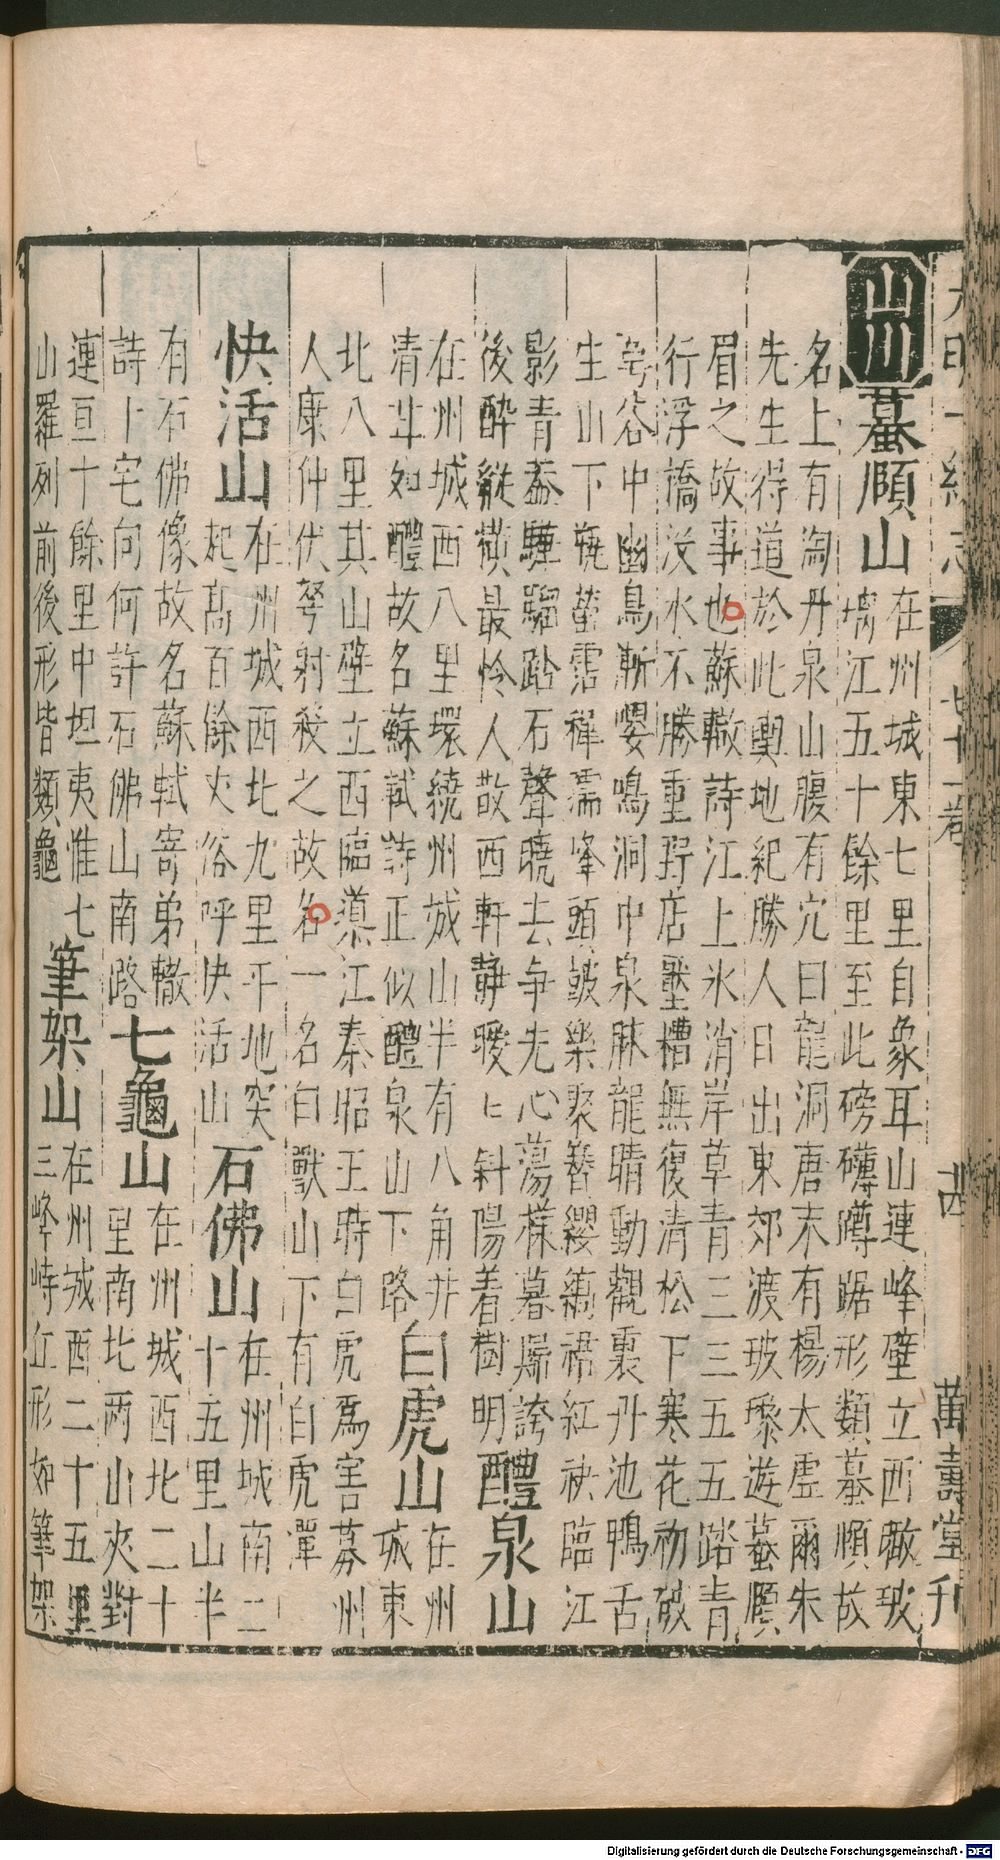 大明一統志 七十一卷 十四 萬壽堂刋
山川
蟇頥山
在州城東七里自象耳山連峰壁立西瞰玻
璃江五十餘里至此磅礡蹲踞形類蟇頥故
名上有淘丹泉山腹有穴曰龍洞唐末有楊太虛爾朱
先生得道於此輿地紀勝人日出東郊渡玻瓈遊蟇頥
眉之故事也蘇轍詩江上氷消岸草青三三五五踏青
行浮橋没水不勝重野店壓槽無復清松下寒花初破
萼谷中幽鳥漸嚶鳴洞中泉脉龍晴動觀裏丹池鴨舌
生山下瓶甖霑稺孺峯頭皷樂聚簪纓縞裙紅袂臨江
影青蓋驊騮踏石聲曉去争先心蕩樣暮歸誇
後酔縱横最怜人散西軒静曖曖斜陽着樹明
醴泉山
在州城西八里環繞州城山半有八角井
清甘如醴故名蘇軾詩正似醴泉山下路
白虎山
在州
城東
北八里其山壁立西臨導江秦昭王時白虎爲害募州
人康仲伏弩射殺之故名一名白獸山下有白虎潭
快活山
在州城西北九里平地突
起髙百餘丈俗呼快活山
石佛山
在州城南二
十五里山半
有石佛像故名蘇軾寄弟轍
詩卜宅向何許石佛山南路
七龜山
在州城西北二十
里南北两山夾對
連亘十餘里中坦夷惟七
山羅列前後形皆類龜
筆架山
在州城西二十五里
三峰峙丘形如筆架
Digitalisierung gefördert durch die Deutsche Forschungsgemeinschaft - DFG